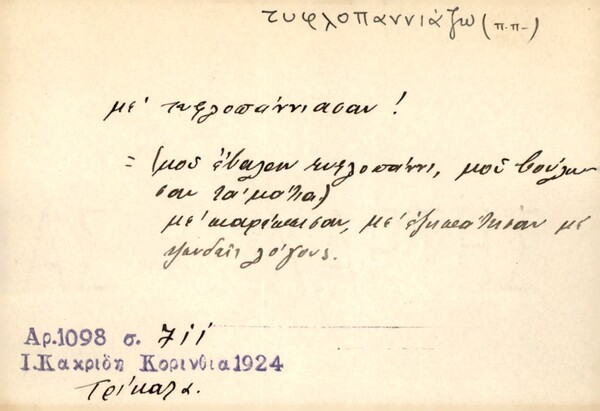 τυφλοπαννιάζω (π.π-)
μέ τυφλοπάννιασαν!
= (μοῦ ἔβαλαν τυφλοπάννι, μοῦ βούλω-
σαν τά μάτια)
μέ παρέπεισαν, μέ ἐξηπάτησαν μέ
ψευδεῖς λόγους.
Αρ.1098 σ. 711
Ι.Κακριδη Κορινθια 1924
Τρίκαλα.